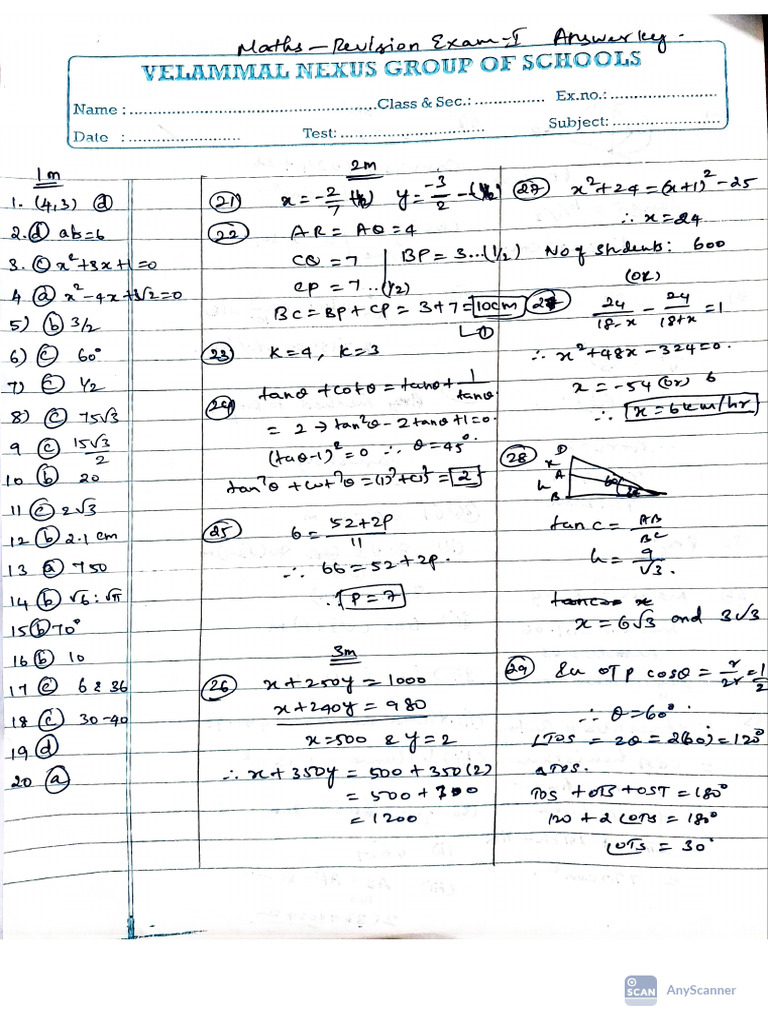 Maths - Revision Exam-I Answer key.
VELAMMAL NEXUS GROUP OF SCHOOLS
Name : ............ Class & Sec.: ............ Ex.no.: ............
Date : ............ Test: ............ Subject: ............
1m
1. (4,3) ⓓ
2. ⓓ ab=6
3. ⓒ x²+3x+1=0
4 ⓓ x²-4x+3√2=0
5) ⓑ 3/2
6) ⓒ 60°
7) ⓒ 1/2
8) ⓒ 75√3
9 ⓒ 15√3/2
10 ⓑ 20
11 ⓒ 2√3
12 ⓑ 2.1 cm
13 ⓐ 750
14 ⓑ √6:√π
15 ⓑ 70°
16 ⓑ 10
17 ⓒ 6 & 36
18 ⓒ 30-40
19 ⓓ
20 ⓐ
2m
21) x = -2/7 (½) y = -3/2 - (½)
22 AR = AQ = 4
CQ = 7 BP = 3...(1/2)
CP = 7 ..(1/2)
BC = BP + CP = 3+7 = 10cm
①
23 K=4, K=3
24 tanθ + cotθ = tanθ + 1/tanθ
= 2 → tan²θ - 2tanθ + 1 = 0.
(tanθ-1)² = 0 ∴ θ = 45°.
tan²θ + cot²θ = (1)² + (1)² = 2
25 6 = 52+2P/11
∴ 66 = 52 + 2P.
∴ P = 7
3m
26 x + 250y = 1000
x + 240y = 980
x=500 & y = 2
∴ x + 350y = 500 + 350(2)
= 500 + 700
= 1200
27 x²+24 = (x+1)² - 25
∴ x = 24
No of students: 600
(OR)
27 24/18-x - 24/18+x = 1
∴ x² + 48x - 324 = 0.
x = -54 (or) 6
∴ x = 6 km/hr
28 D
x
A
h
B
tan c = AB/BC
h = 9/√3.
x = 6√3 and 3√3
29 OTP cosθ = r/2r = 1/2
∴ θ = 60°
∠TOS = 2θ = 2(60°) = 120°
ΔTOS.
TOS + OTS + OST = 180°
120 + 2∠OTS = 180°
∠OTS = 30°
SCAN
AnyScanner